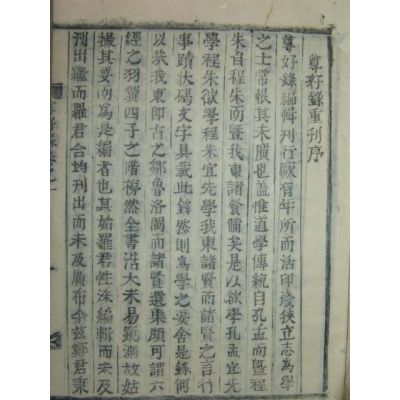 尊好錄重刊序
尊好錄編輯刊行厥有年所而活印狹立志為學
之士常恨其未廣也盖惟道學傳統自孔孟而曁程
朱自程朱而曁我東諸賢備矣是以欲學孔孟宜先
學程朱欲學程朱宜先學我東諸賢而諸賢之言行
事蹟狀碣文字具載此錄然則為學之要舍是錄何
以哉我東卽古之鄒魯洛閩而諸賢集顧可謂六
經之羽翼四子之階梯然全書浩大未易窺測故姑
撮其要而為是編者也其始羅君性洙編輯而未及
刊出繼而羅君合均刊出而未及廣布今玆鄭君東